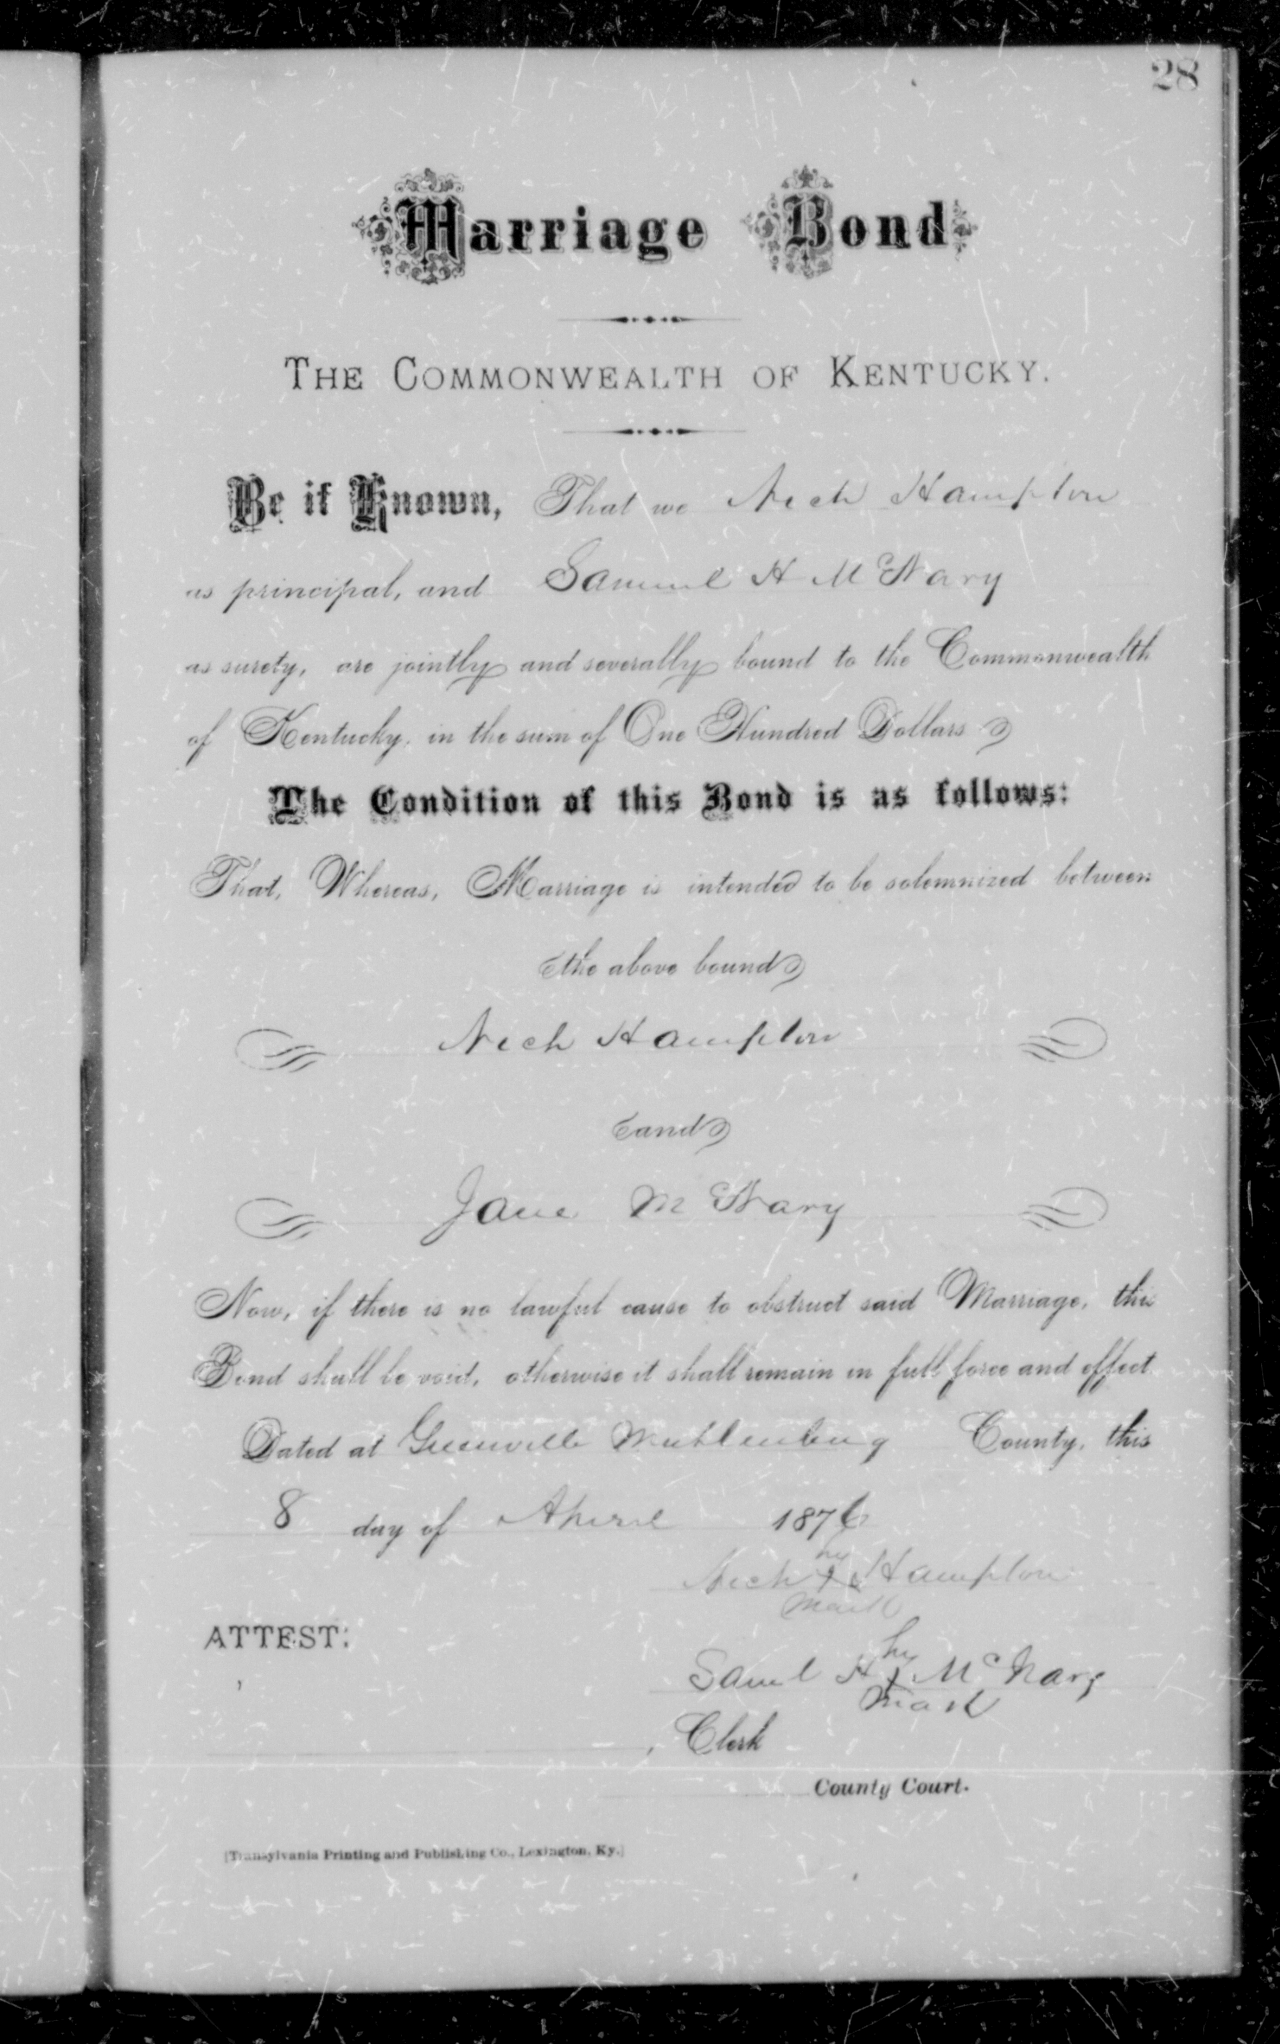 28
Marriage Bond
THE COMMONWEALTH OF KENTUCKY.
Be it Known, That we Nech Hampton
as principal, and Samuel H McNary
as surety, are jointly and severally bound to the Commonwealth
of Kentucky, in the sum of One Hundred Dollars
The Condition of this Bond is as follows:
That, Whereas, Marriage is intended to be solemnized between
the above bound
Nech Hampton
and
Jane McNary
Now, if there is no lawful cause to obstruct said Marriage, this
Bond shall be void, otherwise it shall remain in full force and effect
Dated at Greenville Muhlenburg County, this
8 day of Aperil 1876
his
Nech X Hampton
mark
ATTEST:
his
Saml H X McNary
mark
, Clerk
County Court.
[Transylvania Printing and Publishing Co., Lexington, Ky.]